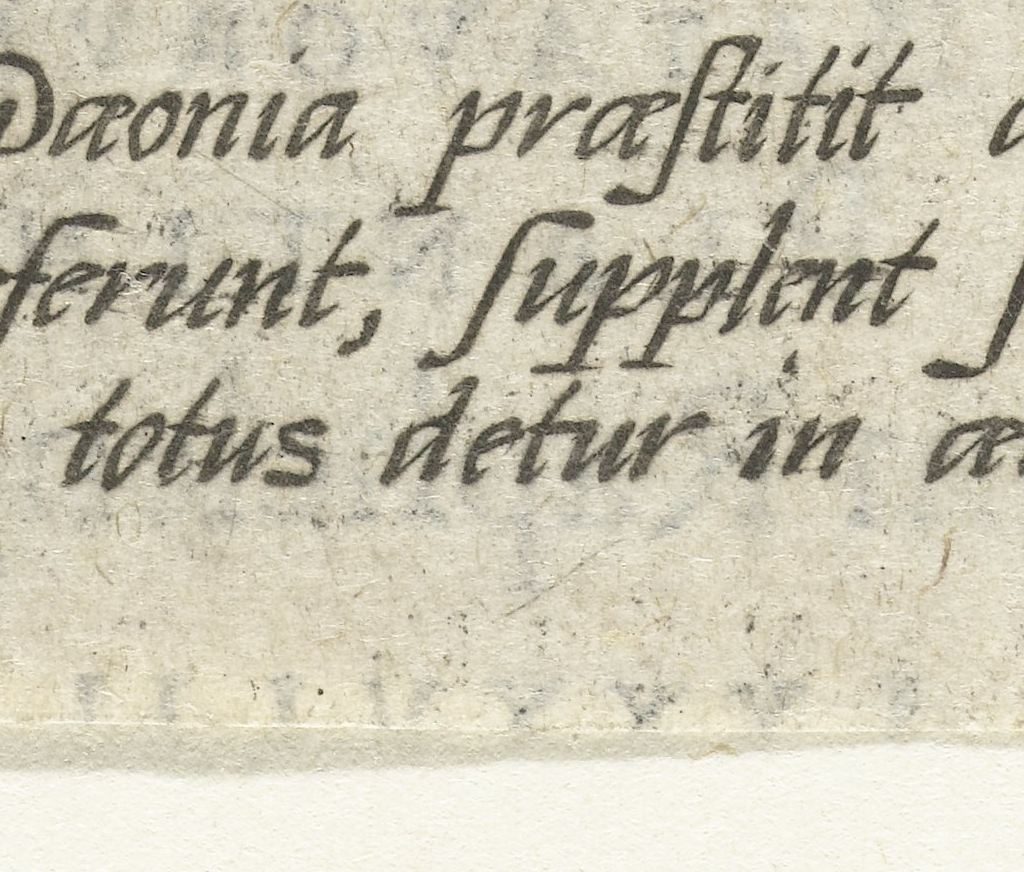 Pæonia præſtitit
ferunt, ſupplent
totus detur in